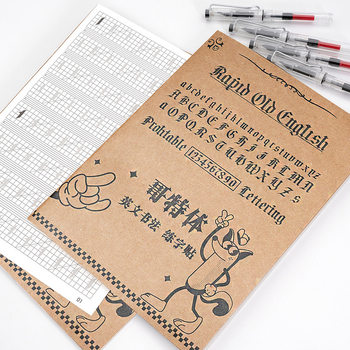 Rapid Old English
abcdefghijklmnopqrstuvwxyz
ABCDEFGHIJKLMN
OPQRSTUVWXYZ
Pickitable 1234567890 Lettering
哥特体
英文书法 练字贴